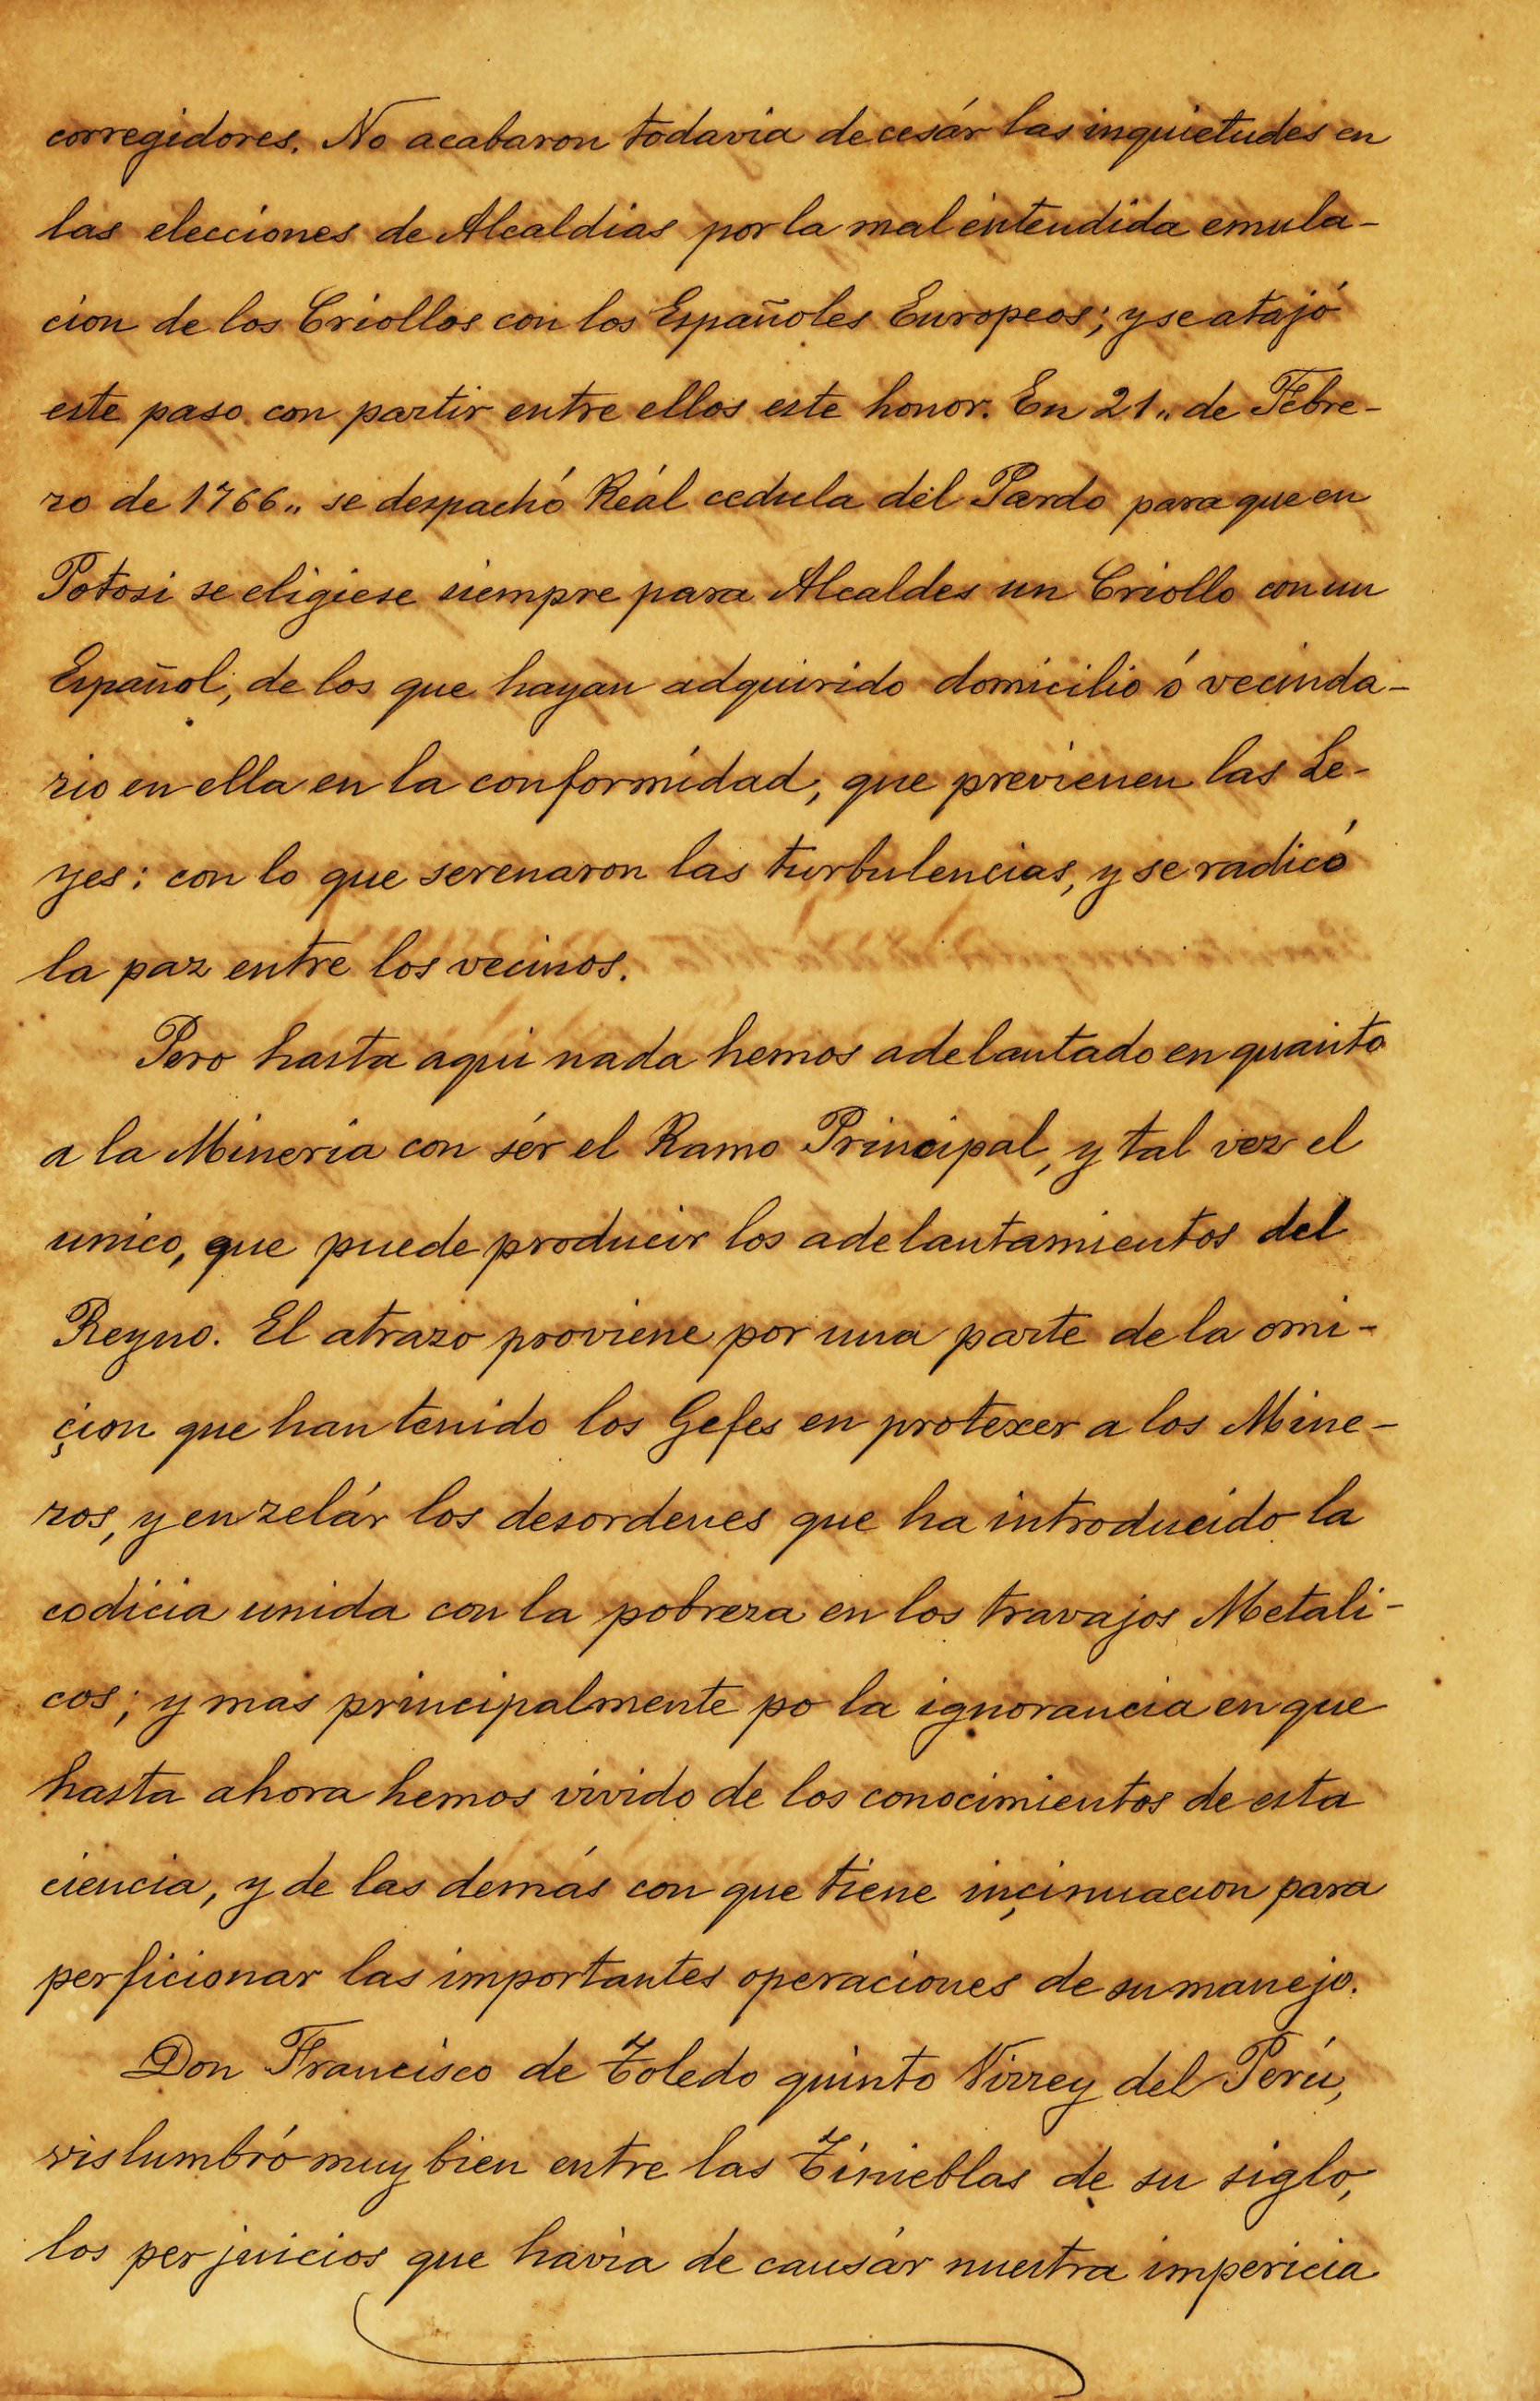 corregidores. No acabaron todavia de cesár las inquietudes en
las elecciones de Alcaldias por la mal entendida emula-
cion de los Criollos con los Españoles Europeos; y se atajó
este paso con partir entre ellos este honor. En 21,, de Febre-
ro de 1766,, se despachó Reál cedula del Pardo para que en
Potosi se eligiese siempre para Alcaldes un Criollo con un
Español, de los que hayan adquirido domicilio ó vecinda-
rio en ella en la conformidad, que previenen las Le-
yes: con lo que serenaron las turbulencias, y se radicó
la paz entre los vecinos.
Pero hasta aqui nada hemos adelantado en quanto
a la Mineria con sér el Ramo Principal, y tal vez el
unico, que puede producir los adelantamientos del
Reyno. El atrazo proviene por una parte de la omi-
çion que han tenido los Gefes en protexer a los Mine-
ros, y en zelár los desordenes que ha introducido la
codicia unida con la pobreza en los travajos Metali-
cos; y mas principalmente po la ignorancia en que
hasta ahora hemos vivido de los conocimientos de esta
ciencia, y de las demás con que tiene inçinuacion para
perficionar las importantes operaciones de su manejo.
Don Francisco de Toledo quinto Virrey del Perú,
vislumbró muy bien entre las Tinieblas de su siglo,
los perjuicios que havia de causár nuestra impericia